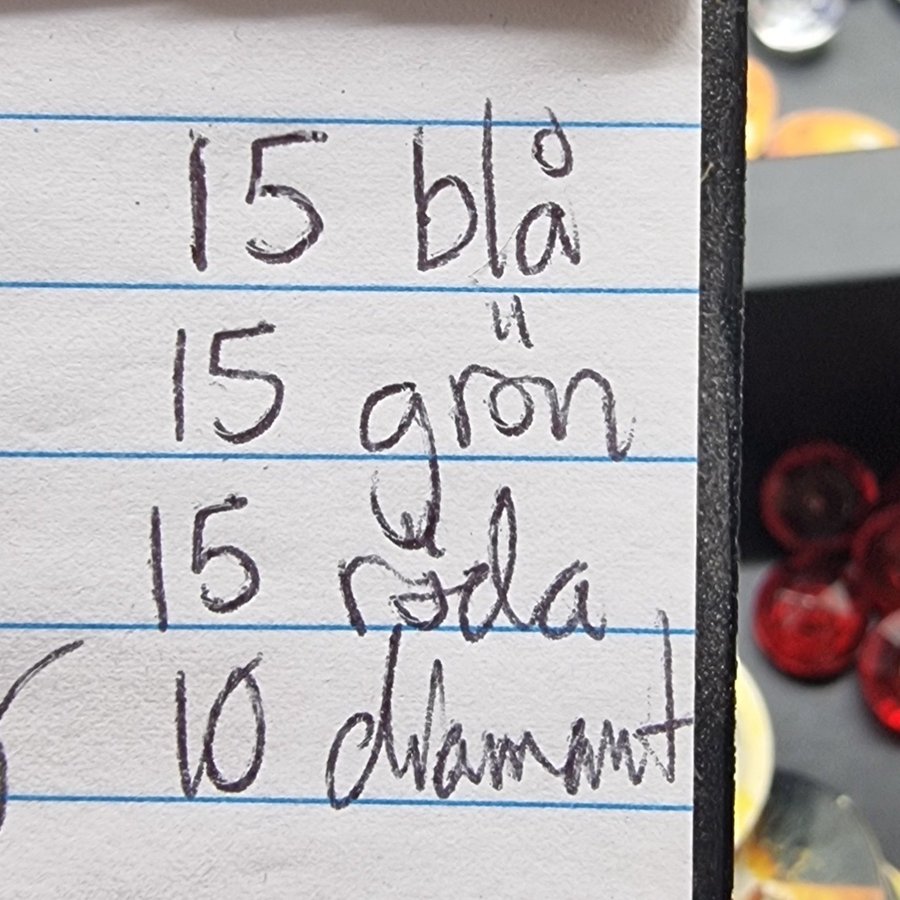 15 blå
15 grön
15 röda
10 diamant